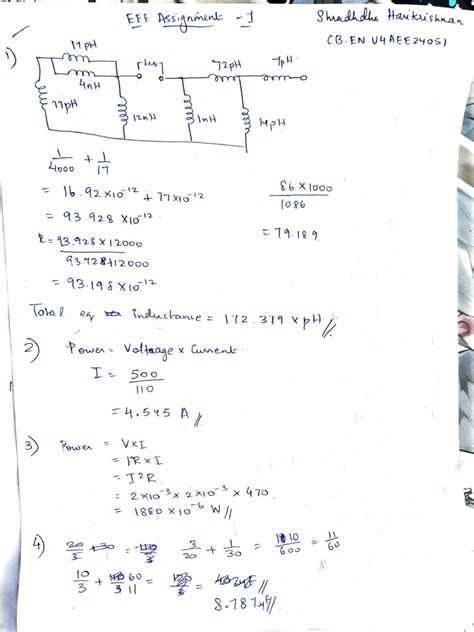 EEE Assignment - 1
Shradhdha Harikrishnan
CB.EN.U4AEE24051
1)
17pH
4nH
77pH
12nH
1nH
72pH
7pH
14pH
1/4000 + 1/17
= 16.92 × 10⁻¹² + 77 × 10⁻¹²
= 93.928 × 10⁻¹²
= 93.928 × 12000 / 93.928 + 12000
= 93.198 × 10⁻¹²
86 × 1000 / 1086
= 79.189
Total eq inductance = 172.379 × pH //
2) Power = Voltaage × Current
I = 500 / 110
= 4.545 A //
3) Power = V × I
= IR × I
= I²R
= 2 × 10⁻³ × 2 × 10⁻³ × 470
= 1880 × 10⁻⁶ W //
4) 3/20 + 1/30 = 110/600 = 11/60
10/3 + 60/11 =
8.787 μF //